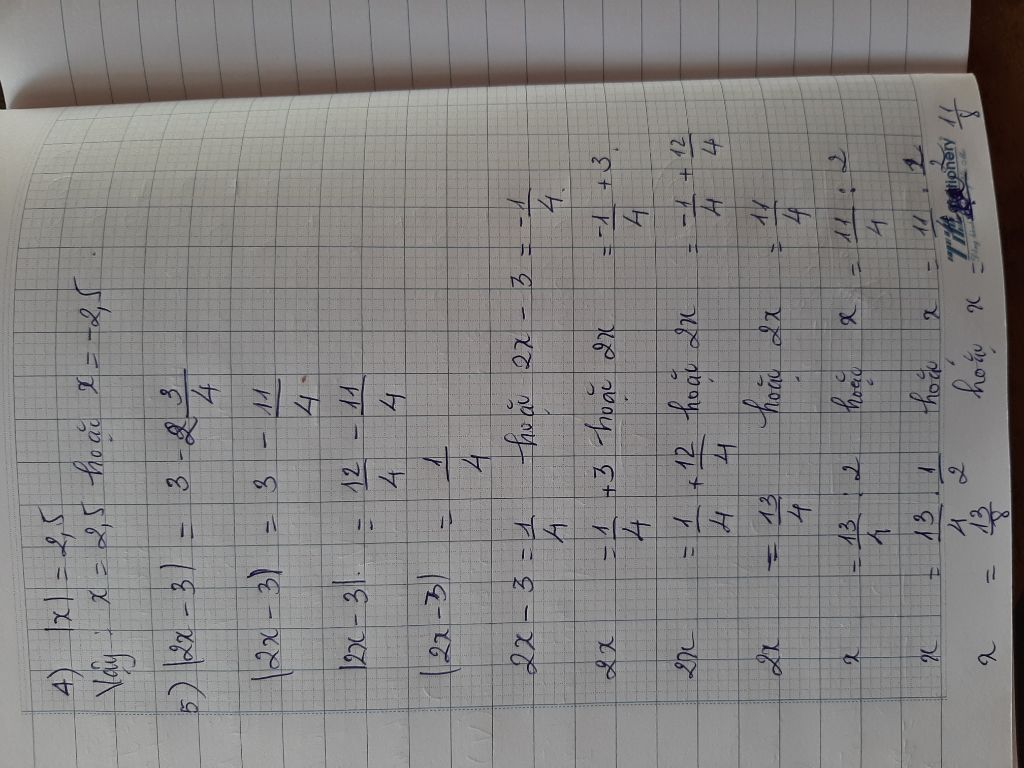 4) |x| = 2,5
Vậy: x = 2,5 hoặc x = -2,5.
5) |2x - 3| = 3 - 2 3/4
|2x - 3| = 3 - 11/4
|2x - 3| = 12/4 - 11/4
|2x - 3| = 1/4
2x - 3 = 1/4 hoặc 2x - 3 = -1/4
2x = 1/4 + 3 hoặc 2x = -1/4 + 3
2x = 1/4 + 12/4 hoặc 2x = -1/4 + 12/4
2x = 13/4 hoặc 2x = 11/4
x = 13/4 : 2 hoặc x = 11/4 : 2
x = 13/4 . 1/2 hoặc x = 11
x = 13/8 hoặc x = 11/8